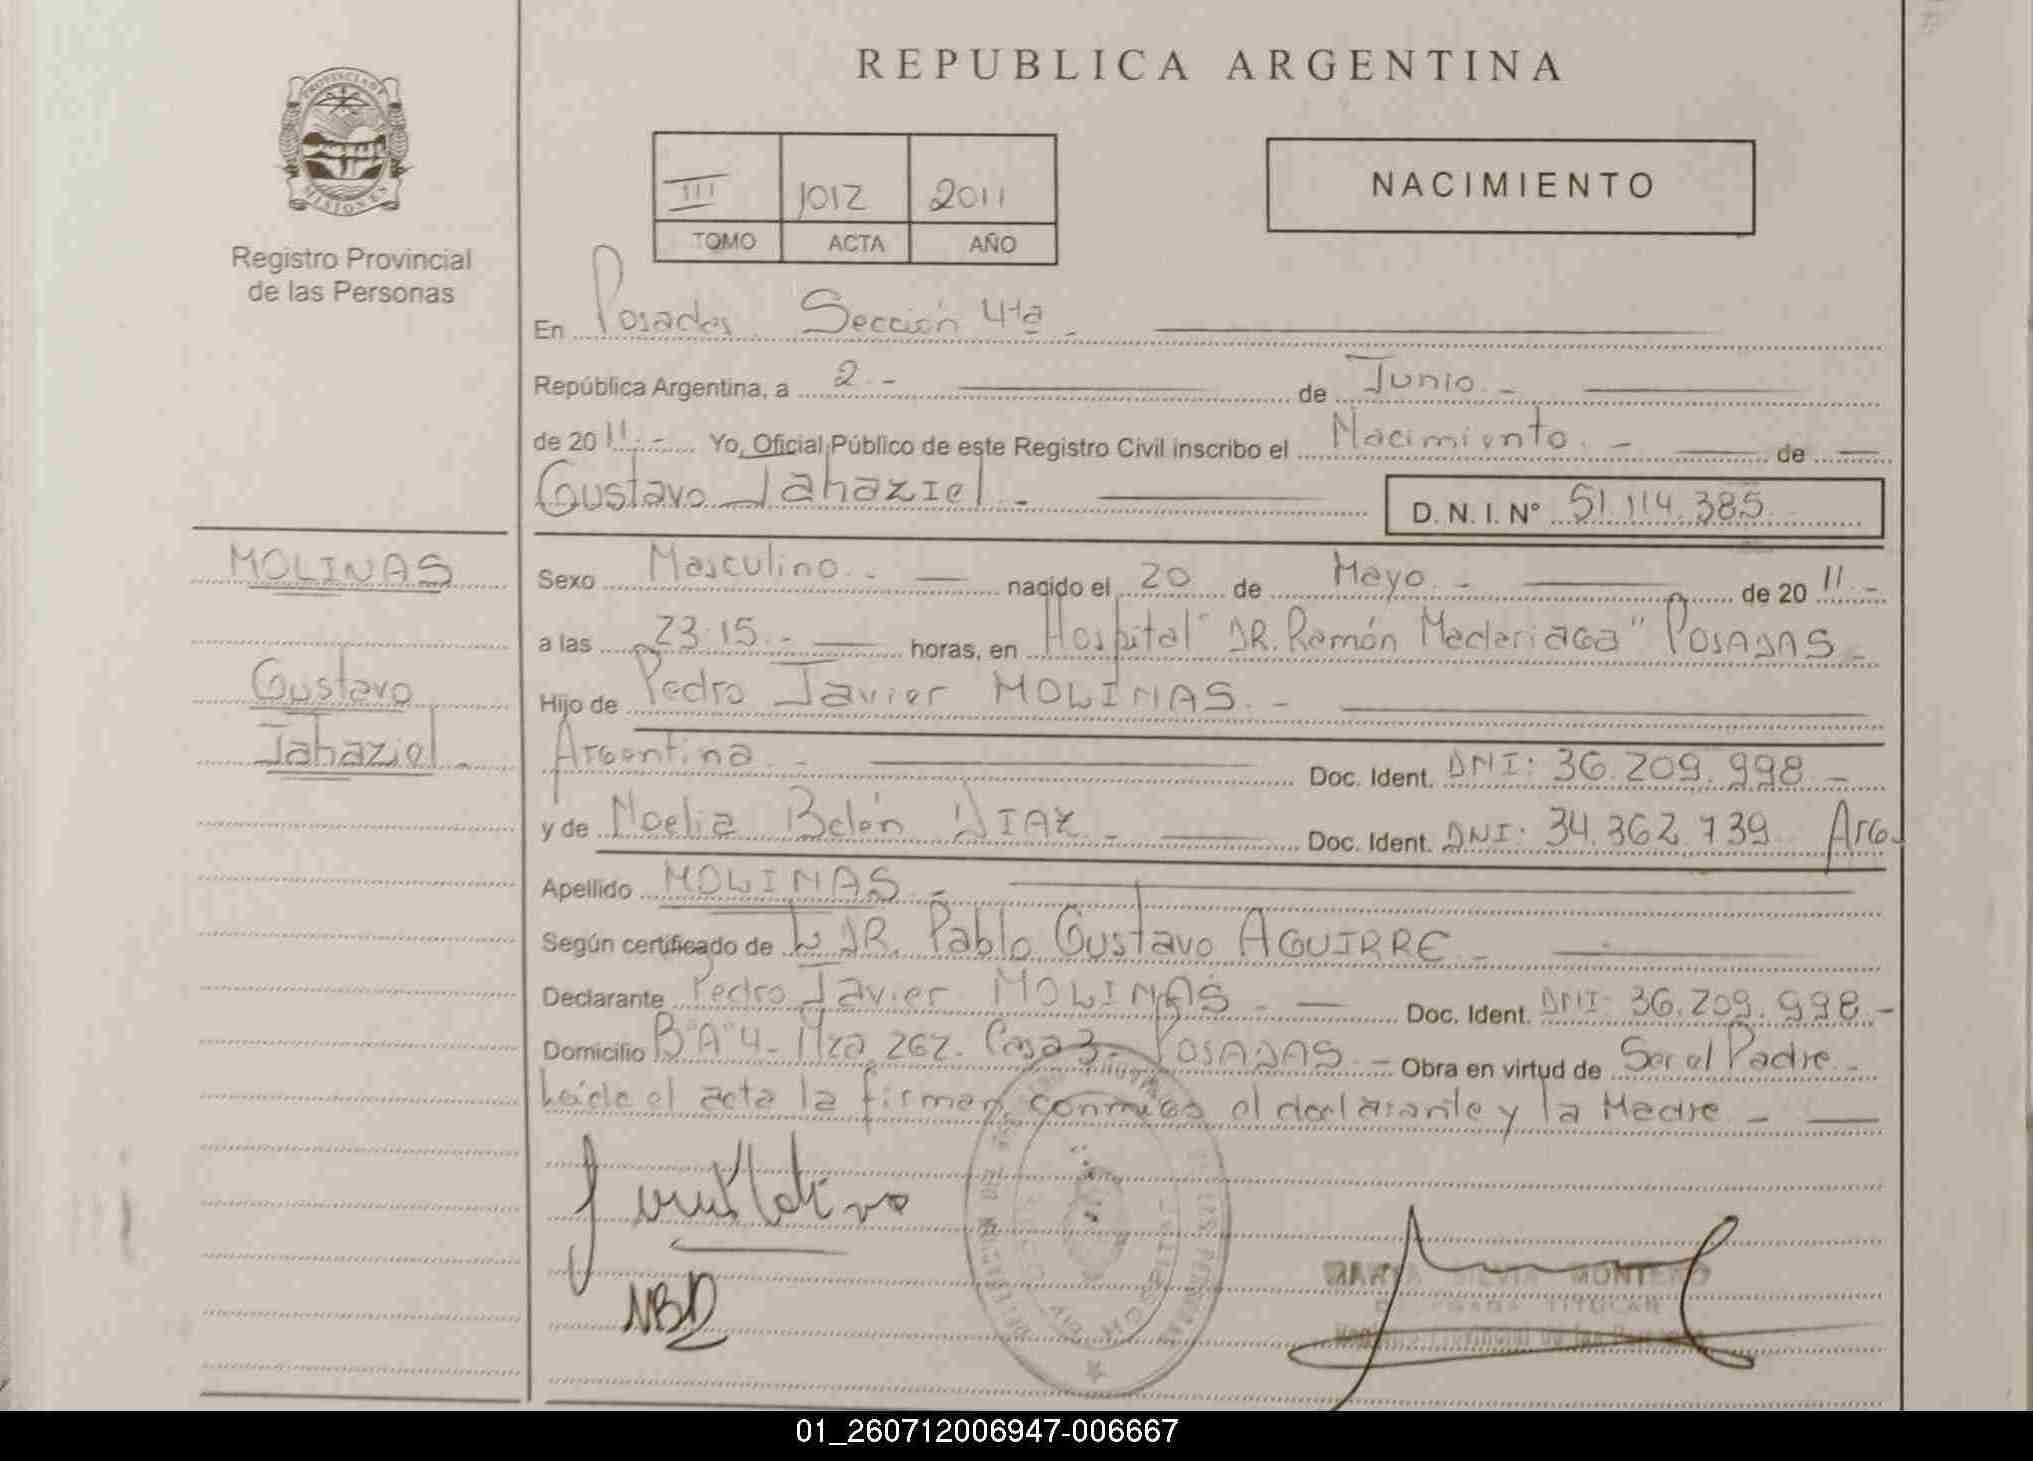 REPUBLICA ARGENTINA
PROVINCIA DE
MISIONES
Registro Provincial
de las Personas
III 1012 2011
TOMO ACTA AÑO
NACIMIENTO
En Posadas Sección 4ta -
República Argentina, a 2.- de Junio.-
de 20 11.- Yo, Oficial Público de este Registro Civil inscribo el Nacimiento.- de
Gustavo Jahaziel - D. N. I. N° 51.114.385
MOLINAS
Gustavo
Jahaziel -
Sexo Masculino.- nacido el 20 de Mayo.- de 20 11.-
a las 23:15.- horas, en Hospital "DR. Ramón Madariaga" POSADAS -
Hijo de Pedro Javier MOLINAS.-
Argentina.- Doc. Ident. DNI: 36.209.998.-
y de Noelia Belén DIAZ - Doc. Ident. DNI: 34.362.739 Arg.
Apellido MOLINAS -
Según certificado de DR. Pablo Gustavo AGUIRRE.-
Declarante Pedro Javier MOLINAS - Doc. Ident. DNI: 36.209.998.-
Domicilio B° "A" 4- Mza 262. Casa 3- POSADAS.- Obra en virtud de Ser el Padre.-
Leída el acta la firman conmigo el declarante y la Madre -
NBD
MARIA SILVIA MONTERO
DELEGADA TITULAR
Registro Provincial de las Personas
01_260712006947-006667